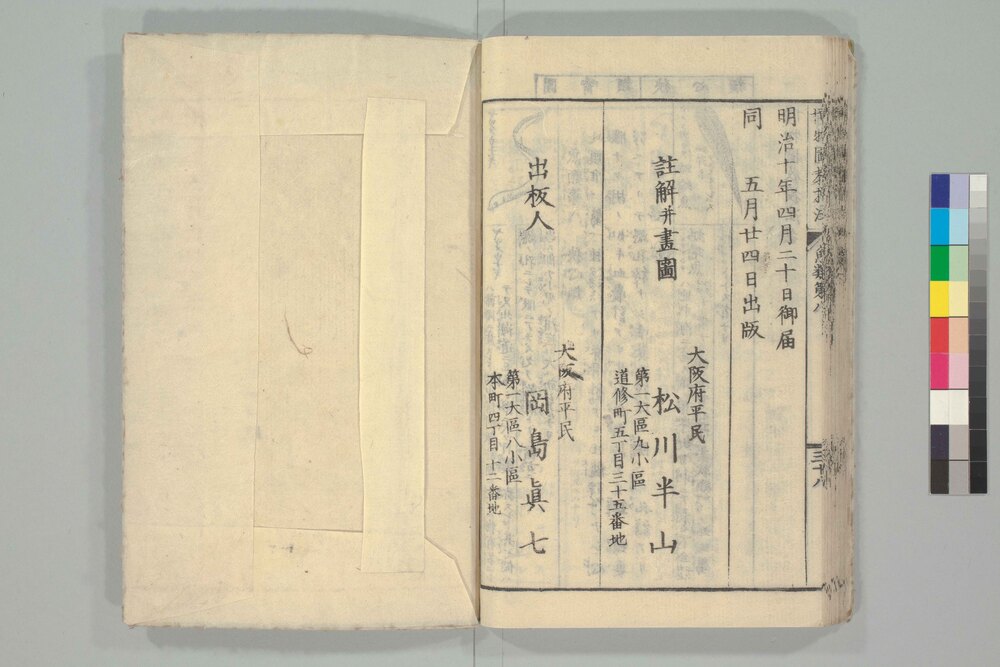 明治十年四月二十日御届
同 五月廿四日出版
註解并畫圖
大阪府平民
松川半山
第一大區九小區
道修町五丁目三十五番地
出板人
大阪府平民
岡島眞七
第一大區八小區
本町四丁目十二番地
魚類第八
三十八